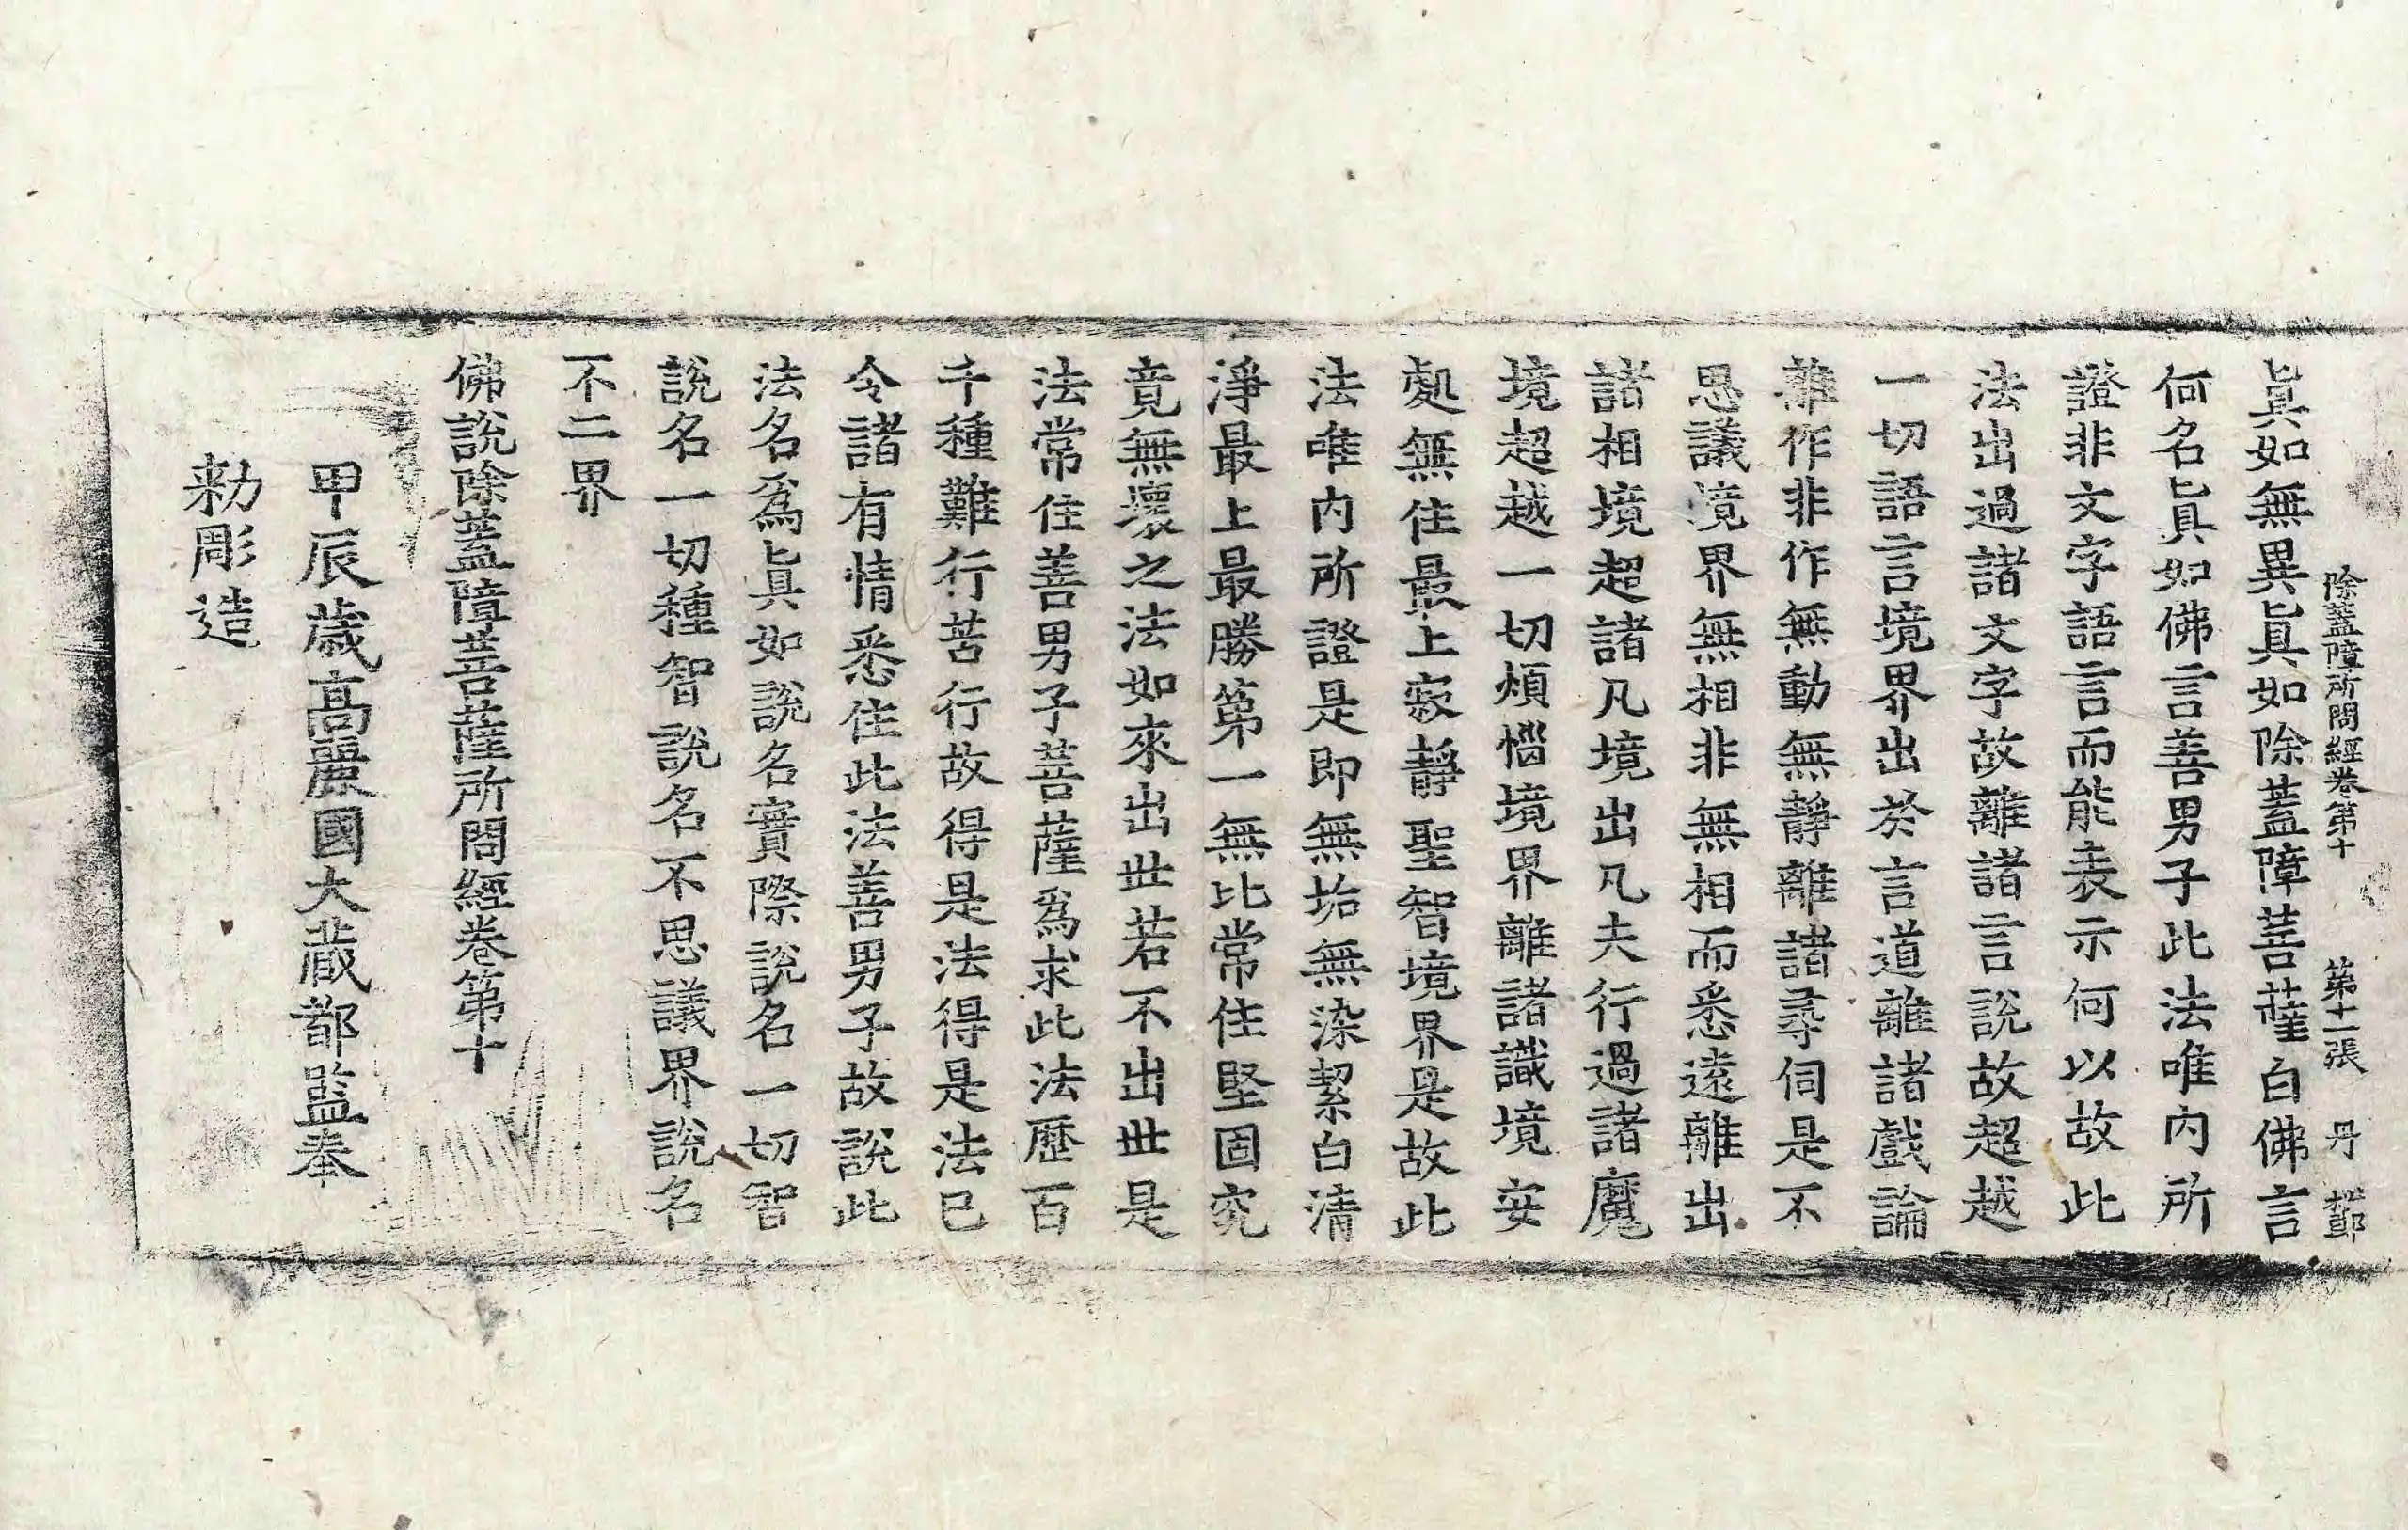 除蓋障所問經卷第十　第十一張　丹
眞如無異眞如除蓋障菩薩白佛言
何名眞如佛言善男子此法唯內所
證非文字語言而能表示何以故此
法出過諸文字故離諸言說故超越
一切語言境界出於言道離諸戲論
離作非作無動無靜離諸尋伺是不
思議境界無相非無相而悉遠離出
諸相境超諸凡境出凡夫行過諸魔
境超越一切煩惱境界離諸識境安
處無住最上寂靜聖智境界是故此
法唯內所證是即無垢無染絜白清
淨最上最勝第一無比常住堅固究
竟無壞之法如來出世若不出世是
法常住善男子菩薩爲求此法歷百
千種難行苦行故得是法得是法已
令諸有情悉住此法善男子故說此
法名爲眞如說名實際說名一切智
說名一切種智說名不思議界說名
不二界
佛說除蓋障菩薩所問經卷第十
甲辰歲高麗國大藏都監奉
勑彫造